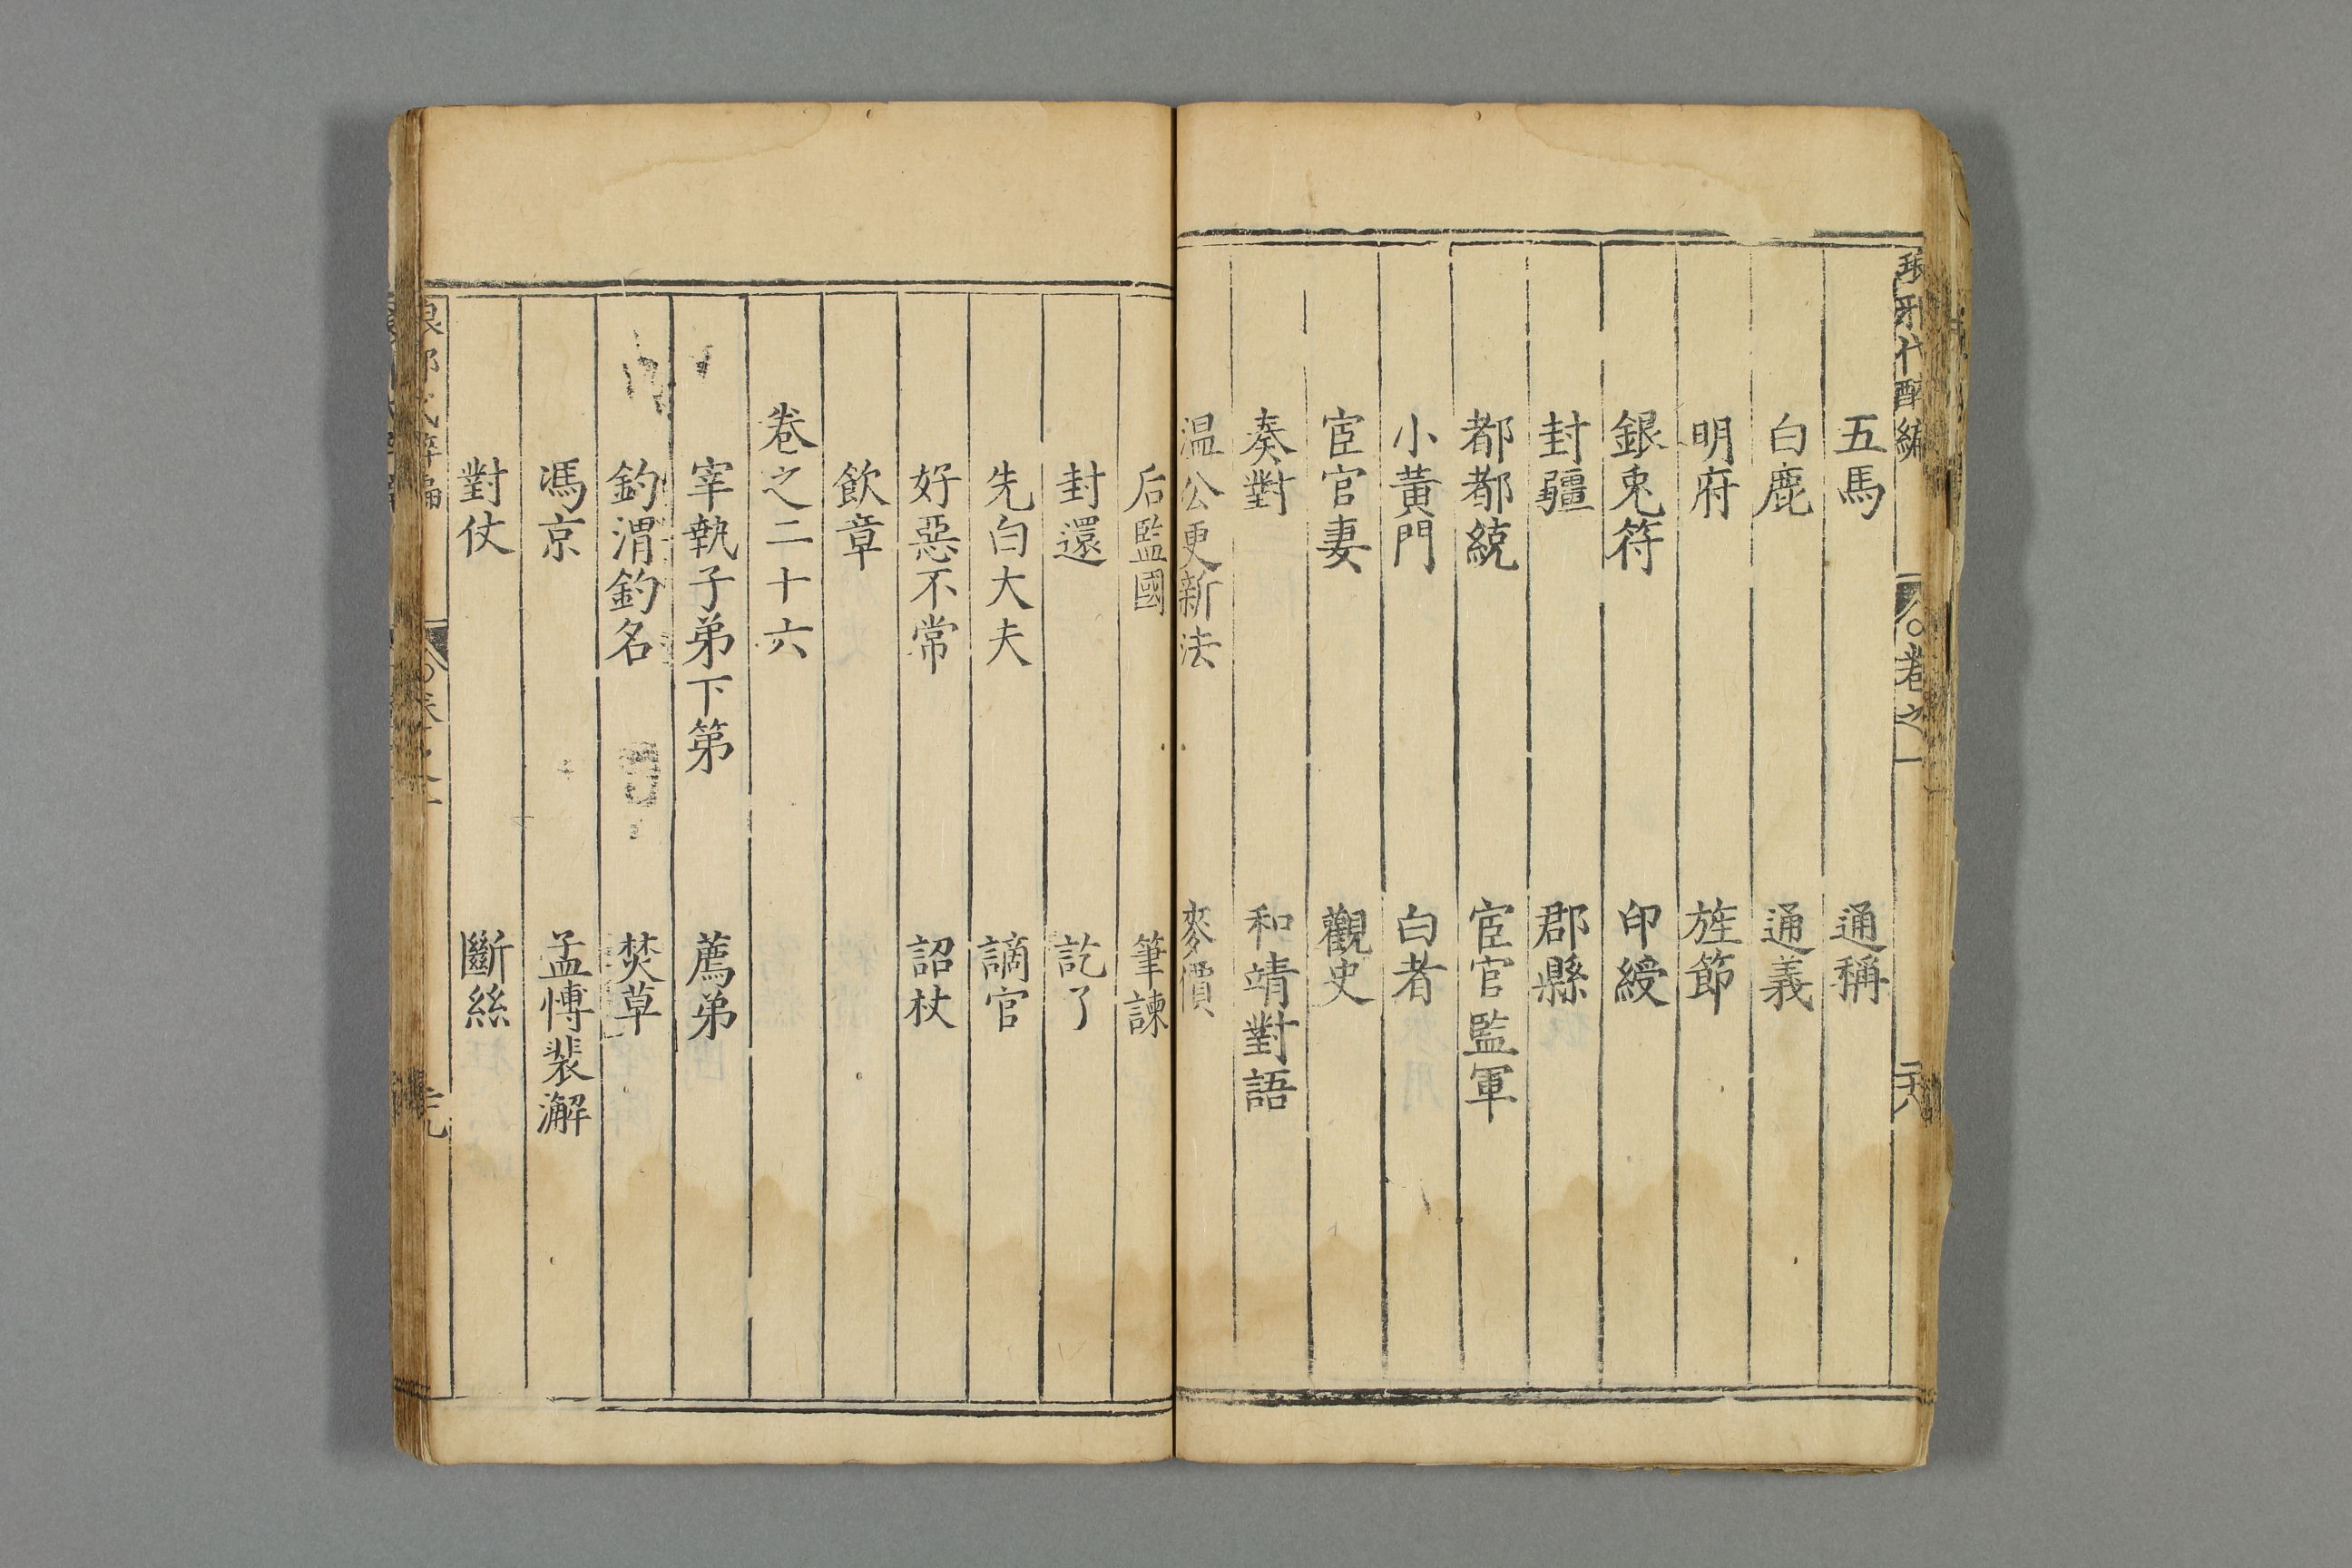 五馬　通稱
白鹿　通義
明府　旌節
銀兎符　印綬
封疆　郡縣
都都統　宦官監軍
小黃門　白者
宦官妻　觀史
奏對　和靖對語
温公更新法　麥價
后監國　筆諫
封還　訖了
先白大夫　謫官
好惡不常　詔杖
飲章
卷之二十六
宰執子弟下第　薦弟
釣渭釣名　焚草
馮京　孟愽裴澥
對仗　斷絲